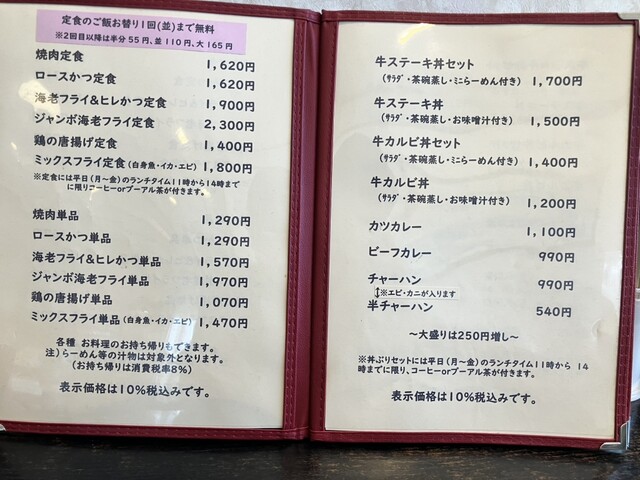 定食のご飯お替り1回(並)まで無料
※2回目以降は半分55円、並110円、大165円
焼肉定食 1,620円
ロースかつ定食 1,620円
海老フライ&ヒレかつ定食 1,900円
ジャンボ海老フライ定食 2,300円
鶏の唐揚げ定食 1,400円
ミックスフライ定食(白身魚・イカ・エビ) 1,800円
※定食には平日(月〜金)のランチタイム11時から14時まで
に限りコーヒーorプーアル茶が付きます。
焼肉単品 1,290円
ロースかつ単品 1,290円
海老フライ&ヒレかつ単品 1,570円
ジャンボ海老フライ単品 1,970円
鶏の唐揚げ単品 1,070円
ミックスフライ単品(白身魚・イカ・エビ) 1,470円
各種 お料理のお持ち帰りもできます。
注)らーめん等の汁物は対象外となります。
(お持ち帰りは消費税率8%)
表示価格は10%税込みです。
牛ステーキ丼セット
(ｻﾗﾀﾞ・茶碗蒸し・ﾐﾆらーめん付き) 1,700円
牛ステーキ丼
(ｻﾗﾀﾞ・茶碗蒸し・お味噌汁付き) 1,500円
牛カルビ丼セット
(ｻﾗﾀﾞ・茶碗蒸し・ﾐﾆらーめん付き) 1,400円
牛カルビ丼
(ｻﾗﾀﾞ・茶碗蒸し・お味噌汁付き) 1,200円
カツカレー 1,100円
ビーフカレー 990円
チャーハン 990円
↕※エビ・カニが入ります
半チャーハン 540円
〜大盛りは250円増し〜
※丼ぶりセットには平日(月〜金)のランチタイム11時から 14
時までに限り、コーヒーorプーアル茶が付きます。
表示価格は10%税込みです。